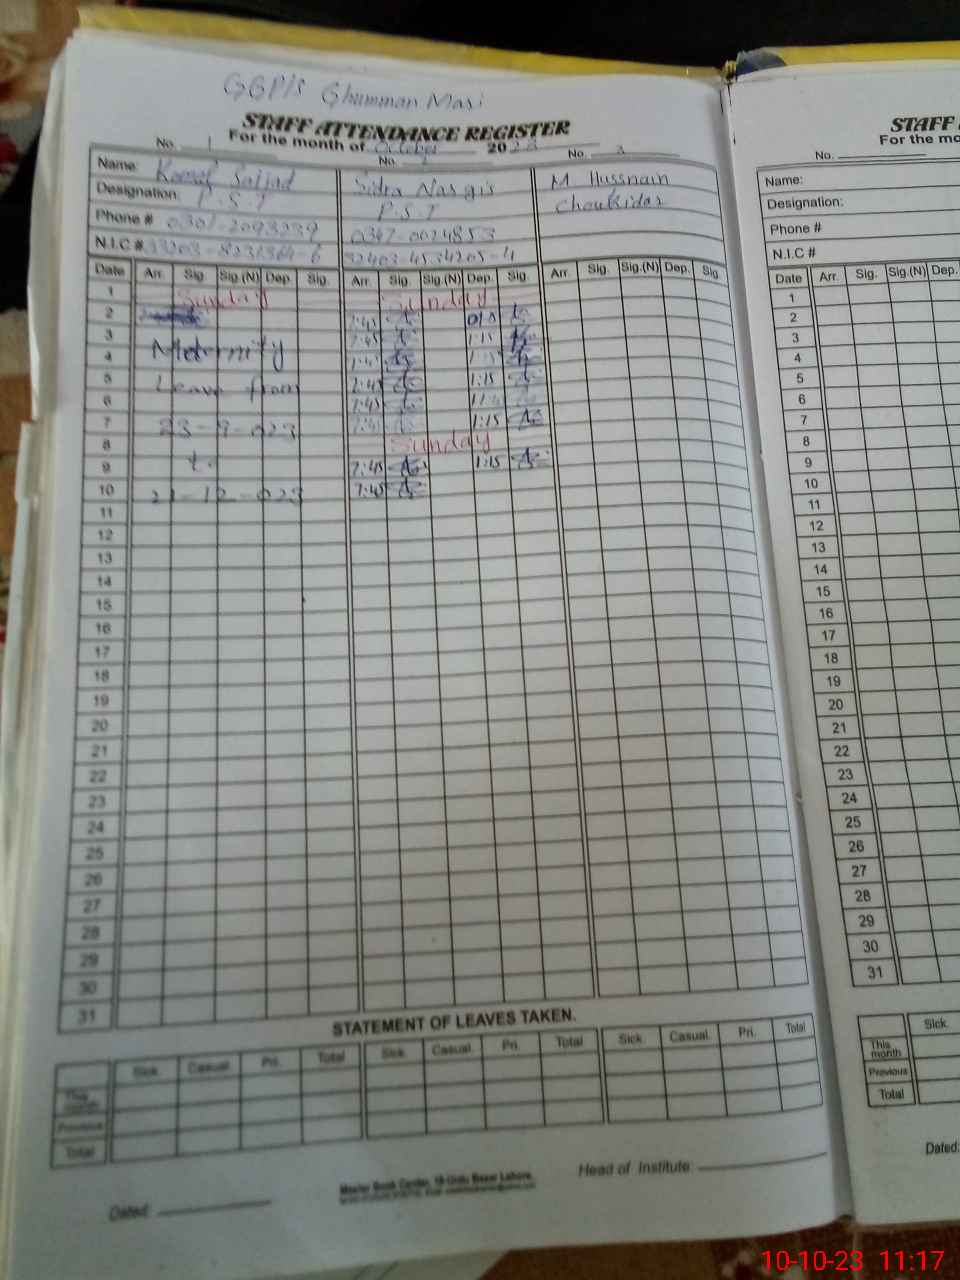 GGP/S Ghumman Masi
STAFF ATTENDANCE REGISTER
For the month of October 2023
No. 1 No. 2 No. 3
Name: Komal Sajjad Sidra Nargis M Hussnain
Designation: P.S.T P.S.T Choukidar
Phone # 0301-2093239 0347-0024853
N.I.C #
Date Arr. Sig. Sig.(N) Dep. Sig. Arr. Sig. Sig.(N) Dep. Sig. Arr. Sig. Sig.(N) Dep. Sig.
1 Sunday Sunday
2 7:45
3 7:45 1:15
4 Meternity 7:45 1:15
5 Leave from 7:45 1:15
6 7:45
7 23-9-023 7:45 1:15
8 Sunday
9 to 7:45 1:15
10 21-12-023 7:45
11
12
13
14
15
16
17
18
19
20
21
22
23
24
25
26
27
28
29
30
31
STATEMENT OF LEAVES TAKEN.
Sick Casual Pri. Total Sick Casual Pri. Total Sick. Casual. Pri. Total
This month
Previous
Total
Head of Institute:
Master Book Center, 18-Urdu Bazar Lahore.
Dated:
STAFF
For the mo
No.
Name:
Designation:
Phone #
N.I.C #
Date Arr. Sig. Sig.(N) Dep.
1
2
3
4
5
6
7
8
9
10
11
12
13
14
15
16
17
18
19
20
21
22
23
24
25
26
27
28
29
30
31
Sick.
This month
Previous
Total
Dated:
10-10-23 11:17